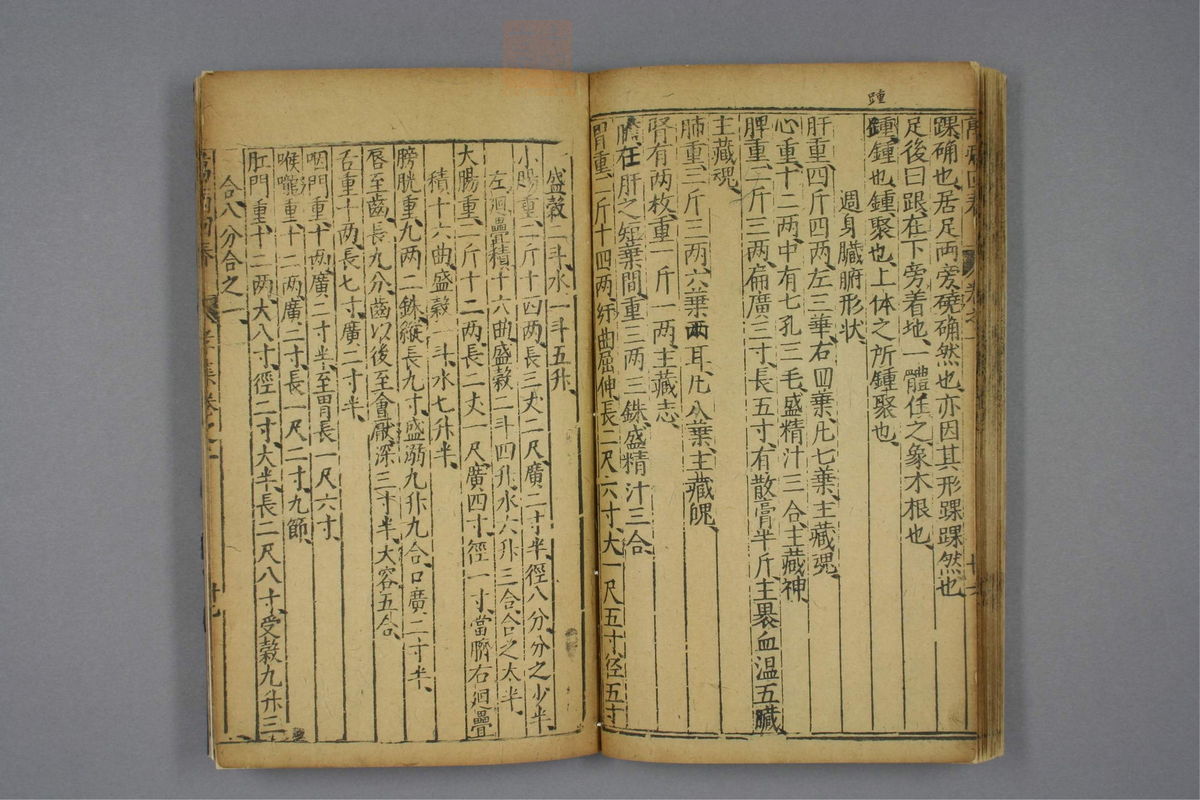 踵
踝确也居足兩旁磽确然也亦因其形踝踝然也
足後曰跟在下旁着地一體任之象木根也
鍾鍾也鍾聚也上体之所鍾聚也
週身臟腑形状
肝重四斤四两左三葉右四葉凡七葉主藏魂
心重十二两中有七孔三毛盛精汁三合主藏神
脾重二斤三两扁廣三寸長五寸有散膏半斤主裹血温五臟
主藏魂
肺重三斤三两六葉兩耳凡八葉主藏魄
腎有两枚重一斤一两主藏志
膽在肝之短葉間重三两三銖盛精汁三合
胃重二斤十四两紆曲屈伸長二尺六寸大一尺五寸径五寸
盛穀二斗水一斗五升
小腸重二斤十四两長三丈二尺廣二寸半徑八分分之少半
左廻疊積十六曲盛穀二斗四升水六升三合合之太半
大腸重二斤十二两長二丈一尺廣四寸徑一寸當臍右廻疊
積十六曲盛穀一斗水七升半
膀胱重九两二銖縱長九寸盛溺九升九合口廣二寸半
唇至齒長九分齒以後至會厭深三寸半大容五合
舌重十两長七寸廣二寸半
咽門重十两廣二寸半至胃長一尺六寸
喉嚨重十二两廣二寸長一尺二寸九節
肛門重十二两大八寸徑二寸大半長二尺八寸受穀九升三
合八分合之一